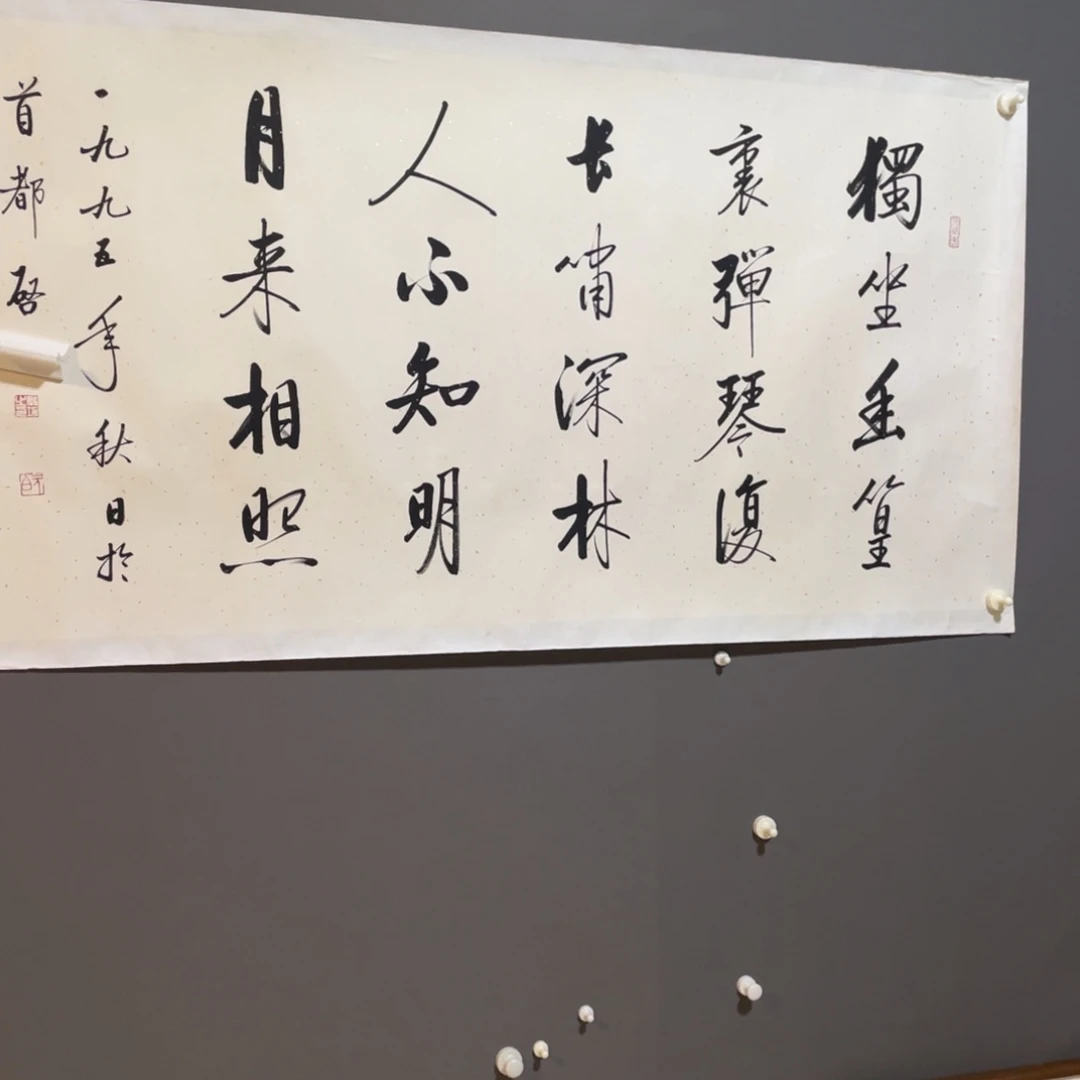 獨坐幽篁
裏彈琴復
长嘯深林
人不知明
月来相照
一九九五年秋日於
首都啓